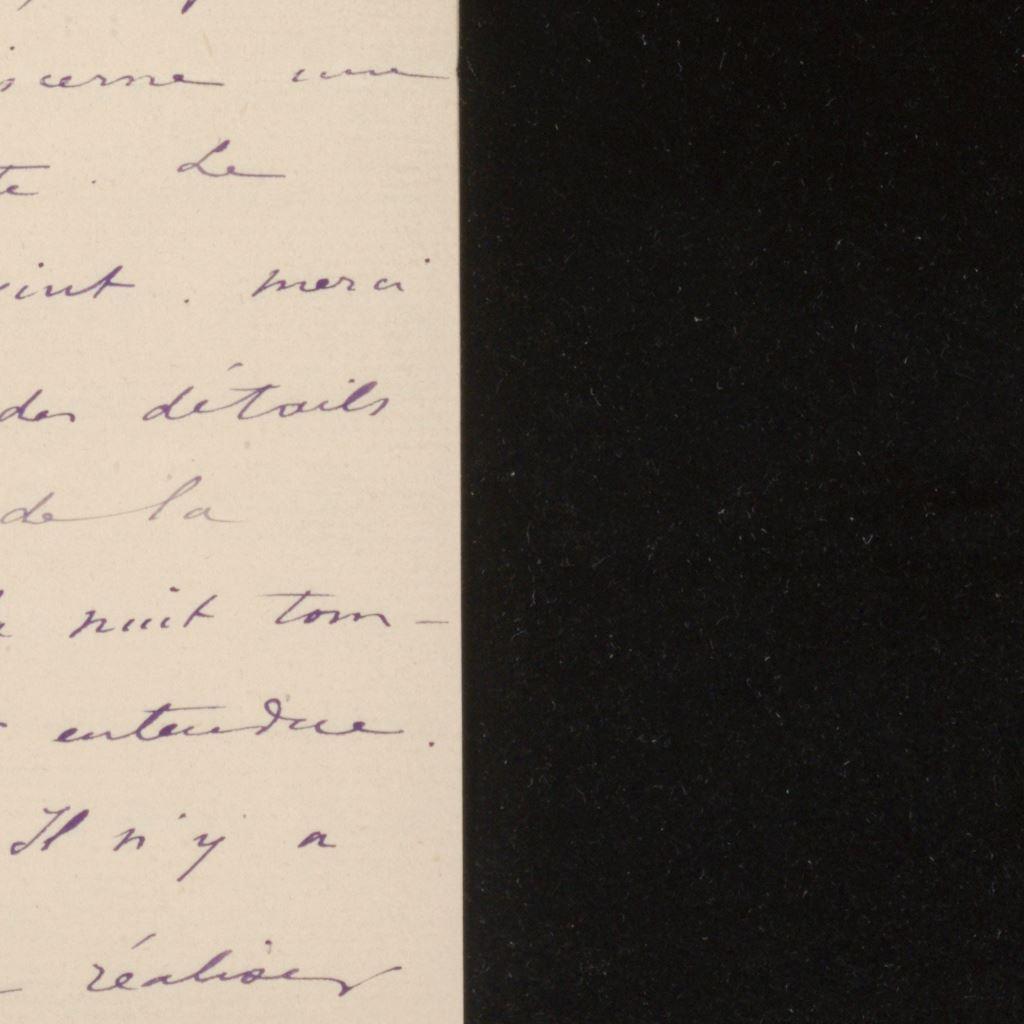 une
Le
merci
des détails
de la
nuit tom-
entendue.
Il n'y a
réaliser